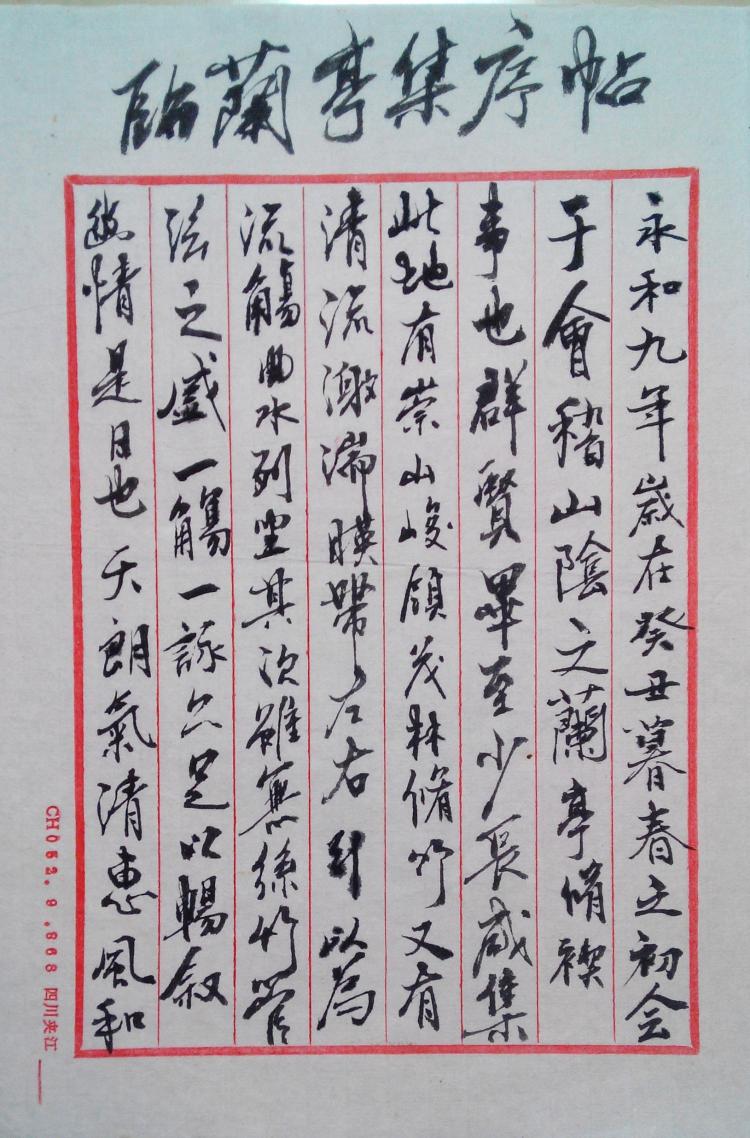 臨蘭亭集序帖
永和九年歲在癸丑暮春之初会
于會稽山陰之蘭亭脩禊
事也群賢畢至少長咸集
此地有崇山峻領茂林脩竹又有
清流激湍暎帶左右引以為
流觴曲水列坐其次雖無絲竹管
弦之盛一觴一詠亦足以暢叙
幽情是日也天朗氣清惠風和
CH052.9.868 四川夹江